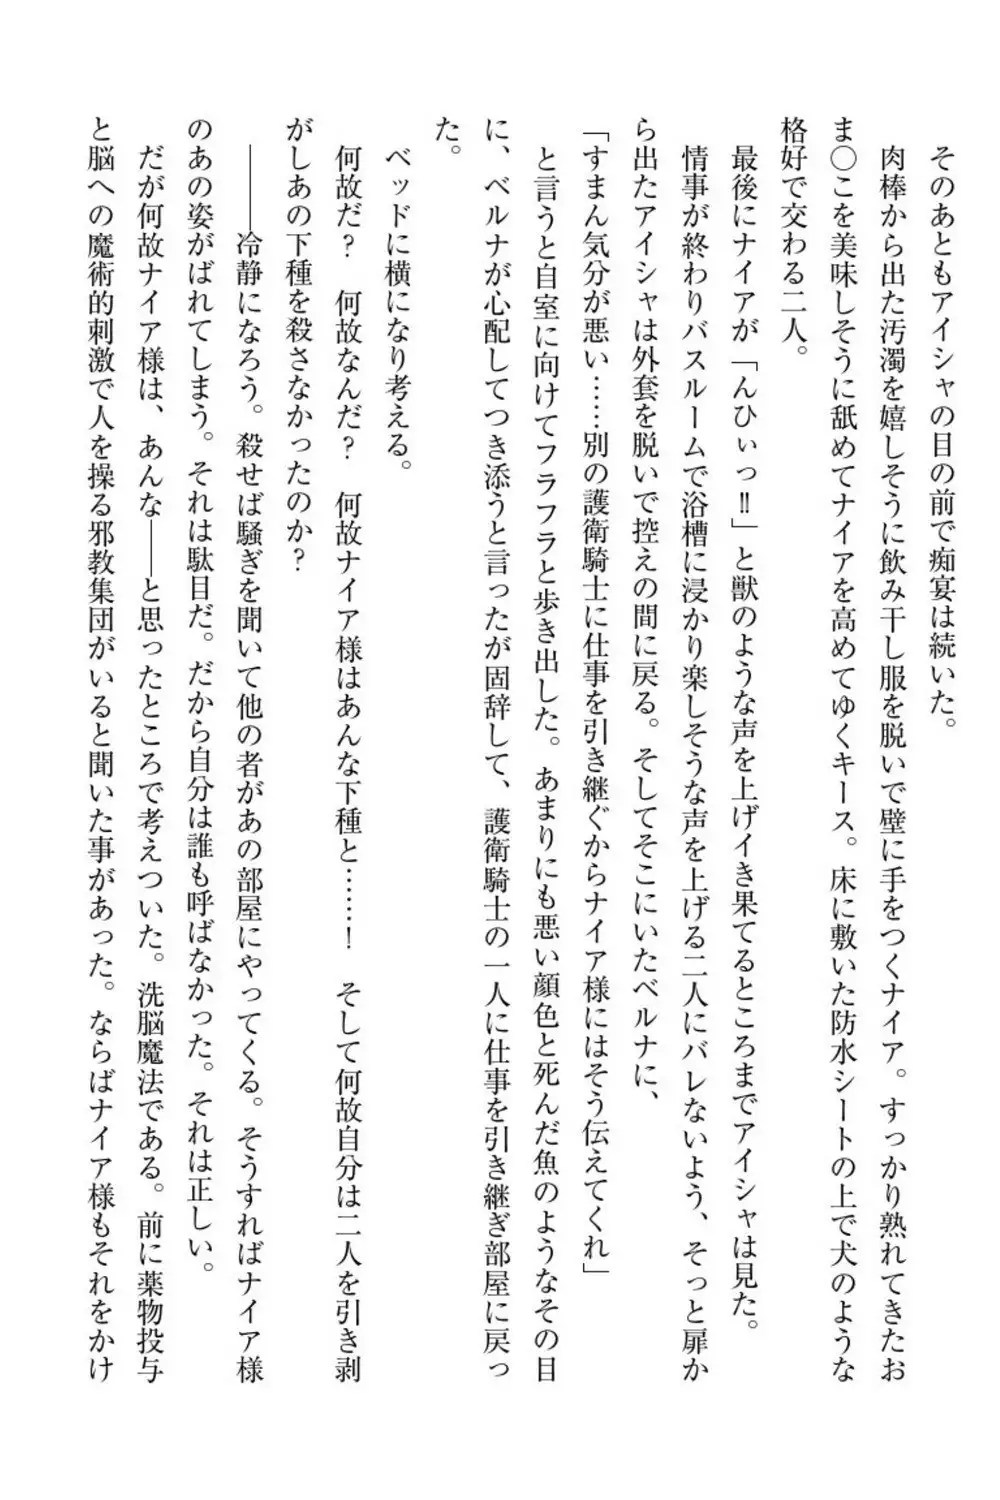 そのあともアイシャの目の前で痴宴は続いた。
肉棒から出た汚濁を嬉しそうに飲み干し服を脱いで壁に手をつくナイア。すっかり熟れてきたお
ま〇こを美味しそうに舐めてナイアを高めてゆくキース。床に敷いた防水シートの上で犬のような
格好で交わる二人。
最後にナイアが「んひぃっ‼」と獣のような声を上げイき果てるところまでアイシャは見た。
情事が終わりバスルームで浴槽に浸かり楽しそうな声を上げる二人にバレないよう、そっと扉か
ら出たアイシャは外套を脱いで控えの間に戻る。そしてそこにいたベルナに、
「すまん気分が悪い……別の護衛騎士に仕事を引き継ぐからナイア様にはそう伝えてくれ」
と言うと自室に向けてフラフラと歩き出した。あまりにも悪い顔色と死んだ魚のようなその目
に、ベルナが心配してつき添うと言ったが固辞して、護衛騎士の一人に仕事を引き継ぎ部屋に戻っ
た。
ベッドに横になり考える。
何故だ？　何故なんだ？　何故ナイア様はあんな下種と……！　そして何故自分は二人を引き剥
がしあの下種を殺さなかったのか？
――冷静になろう。殺せば騒ぎを聞いて他の者があの部屋にやってくる。そうすればナイア様
のあの姿がばれてしまう。それは駄目だ。だから自分は誰も呼ばなかった。それは正しい。
だが何故ナイア様は、あんな――と思ったところで考えついた。洗脳魔法である。前に薬物投与
と脳への魔術的刺激で人を操る邪教集団がいると聞いた事があった。ならばナイア様もそれをかけ